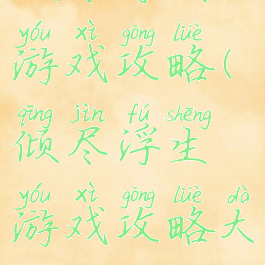 yóu xì gōng lüè
游戏攻略(
qīng jìn fú shēng
倾尽浮生
yóu xì gōng lüè dà
游戏攻略大